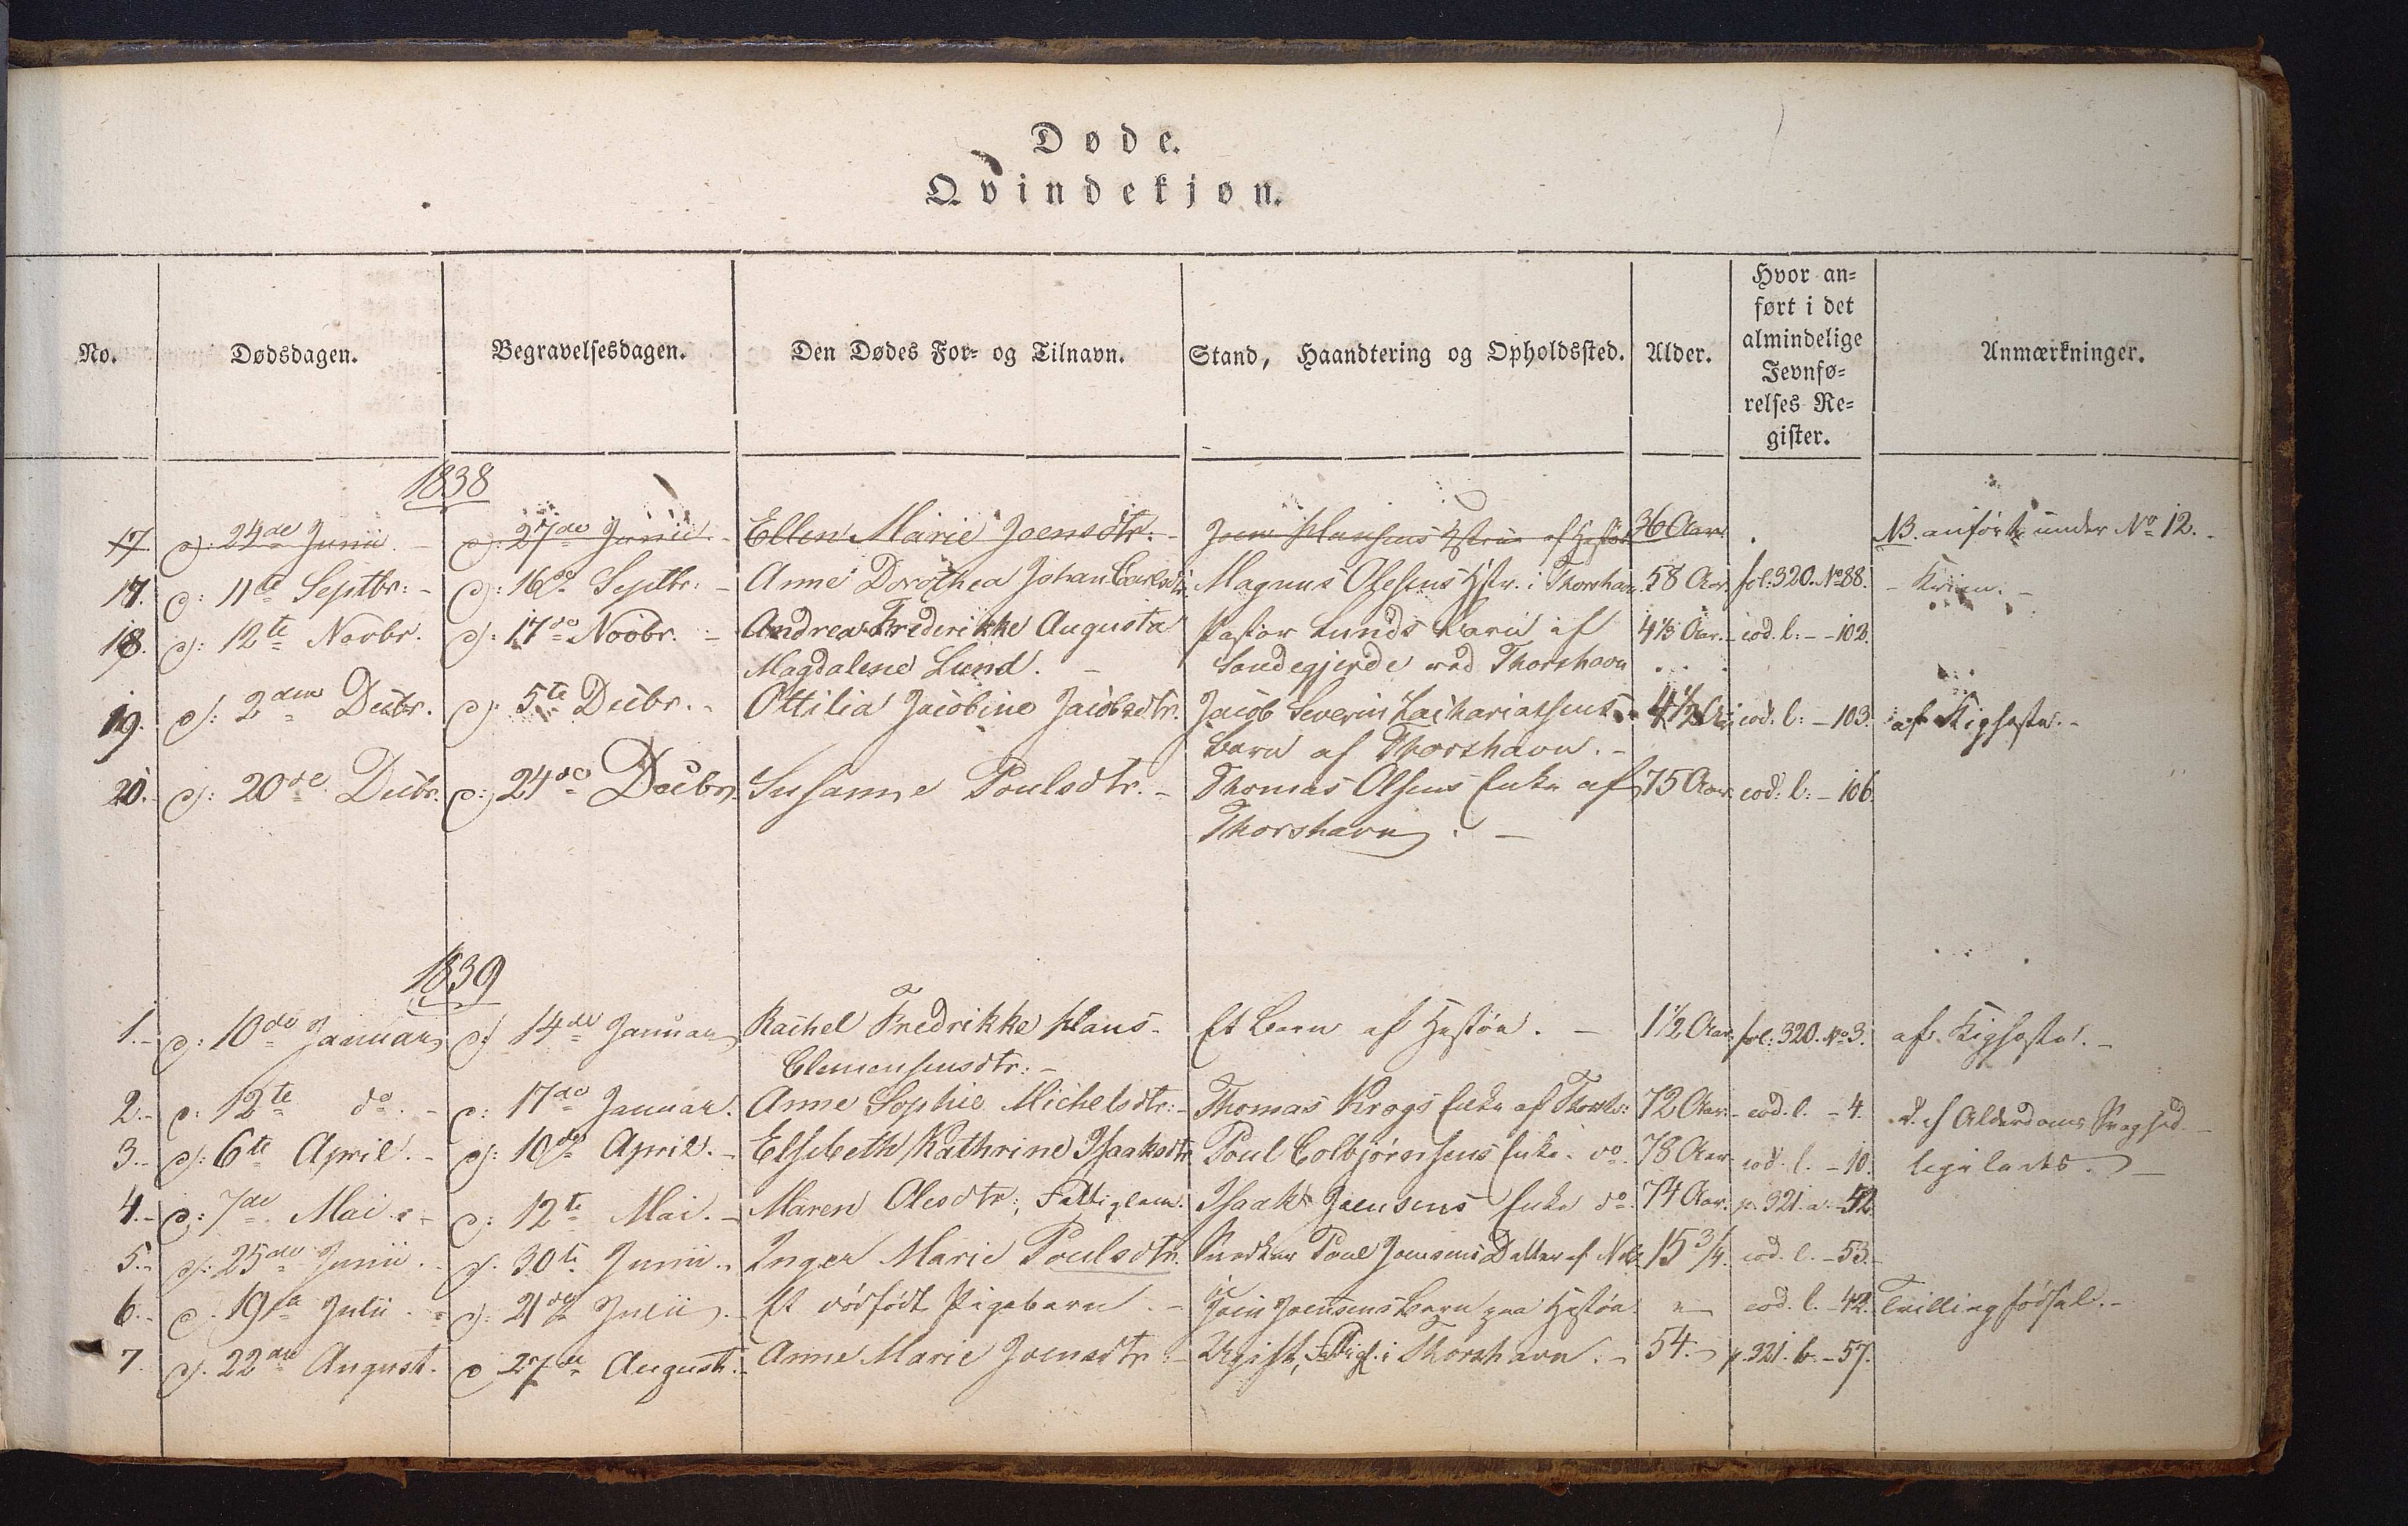 Døde.
Qvindekjøn.
No. Dødsdagen. Begravelsesdagen. Den Dødes For- og Tilnavn. Stand, Haandtering og Opholdssted. Alder. Hvor an=
ført i det
almindelige
Jevnfø=
relses Re=
gister. Anmærkninger.
1838
17. d: 24de Junii. d: 27de Junii. Ellen Marie Joensdtr. Joen Hansens Hstru af Hestøe 36 Aar. NB. anført under No 12.
17. d: 11te Septbr: d: 16de Septbr: Anne Dorothea Johan Carlsdtr. Magnus Olesens Hstr. i Thorshavn. 58 Aar. fol: 320. No 88.
18. d: 12te Novbr. d: 17de Novbr. Andrea Frederikke Augusta Pastor Lunds Barn af 4 1/3 Aar. eod. l: - 102.
Magdalene Lund. Sandegjerde ved Thorshavn
19. d: 2den Decbr. d: 5te Decbr. Ottilia Jacobine Jacobsdtr. Jacob Severin Zachariasens 4 1/2 eod. l: - 103. af Kighoste.
Barn af Thorshavn.
20. d: 20de Decbr. d: 24de Decbr. Susanne Poulsdtr. Thomas Olsens Enke af 75 Aar. eod: l: - 106.
Thorshavn.
1839
1. d: 10de Januar d: 14de Januar Rachel Fredrikke Hans- Et Barn af Hestøe. 1 1/2 Aar. fol: 320. No 3. af Kighoste.
Clemensensdtr:
2. d: 12te do. d: 17de Januar. Anne Sophie Michelsdtr: Thomas Krogs Enke af Thorsh: 72 Aar. eod. l. - 4. Alderdoms Svaghed.
3. d: 6te April. d: 10de April. Elsebeth Kathrine Isaaksdtr. Poul Colbjørnsens Enke. do. 78 Aar. eod. l. - 10.
4. d: 7de Mai. d: 12te Mai. Maren Olesdtr; Fattiglem. Isaak Joensens Enke do. 74 Aar. p. 321. a. - 52.
5. d: 25de Junii. d: 30te Junii. Inger Marie Poulsdtr. Poul Joensens Datter af 15 3/4. eod. l. - 53.
6. d. 19de Julii. d. 21de Julii. Et dødfødt Pigebarn. Joensens Barn paa Hestøe " eod. l. - 42. Tvillingfødsel.
7. d. 22de August. d 27de August. Anne Marie Joensdtr Ugift, Fattigl. i Thorshavn. 54. p. 321. b. - 57.